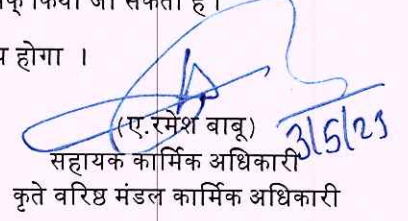 किया जा सकता है।
होगा ।
(ए.रमेश बाबू)
3/5/23
सहायक कार्मिक अधिकारी
कृते वरिष्ठ मंडल कार्मिक अधिकारी